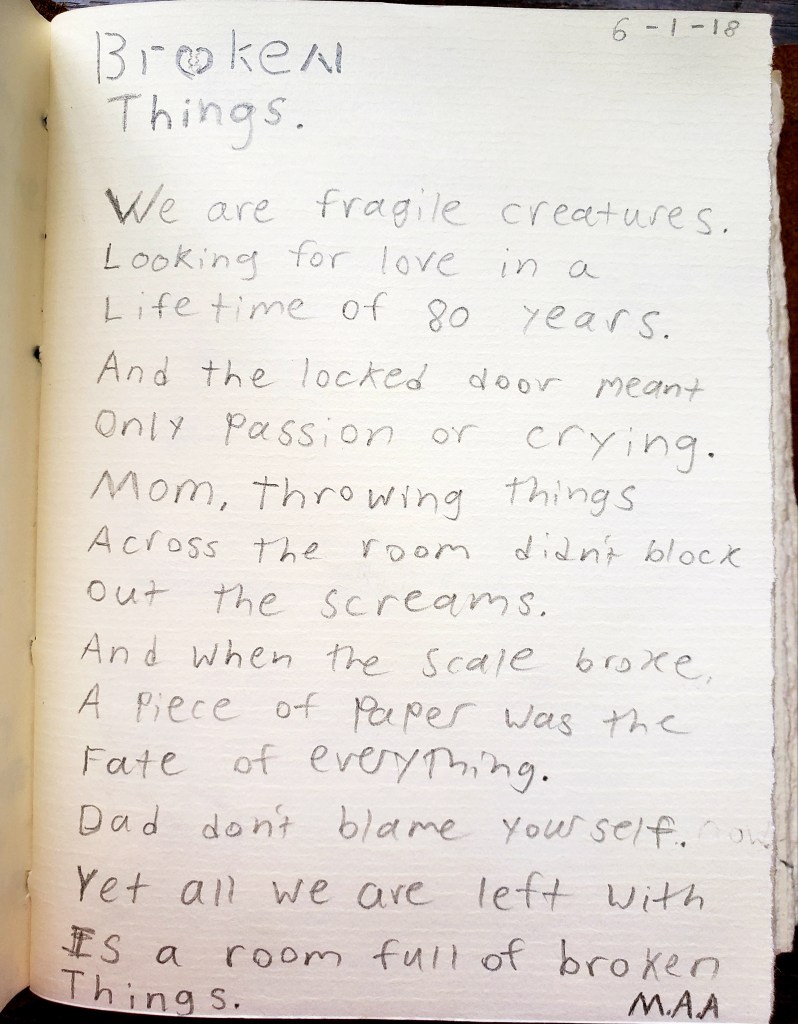 6-1-18
Broken
Things.
We are fragile creatures.
Looking for love in a
Lifetime of 80 years.
And the locked door meant
Only passion or crying.
Mom, throwing things
Across the room didn't block
Out the screams.
And when the scale broke,
A piece of paper was the
Fate of everything.
Dad don't blame yourself.
Yet all we are left with
Is a room full of broken
Things.
M.A.A